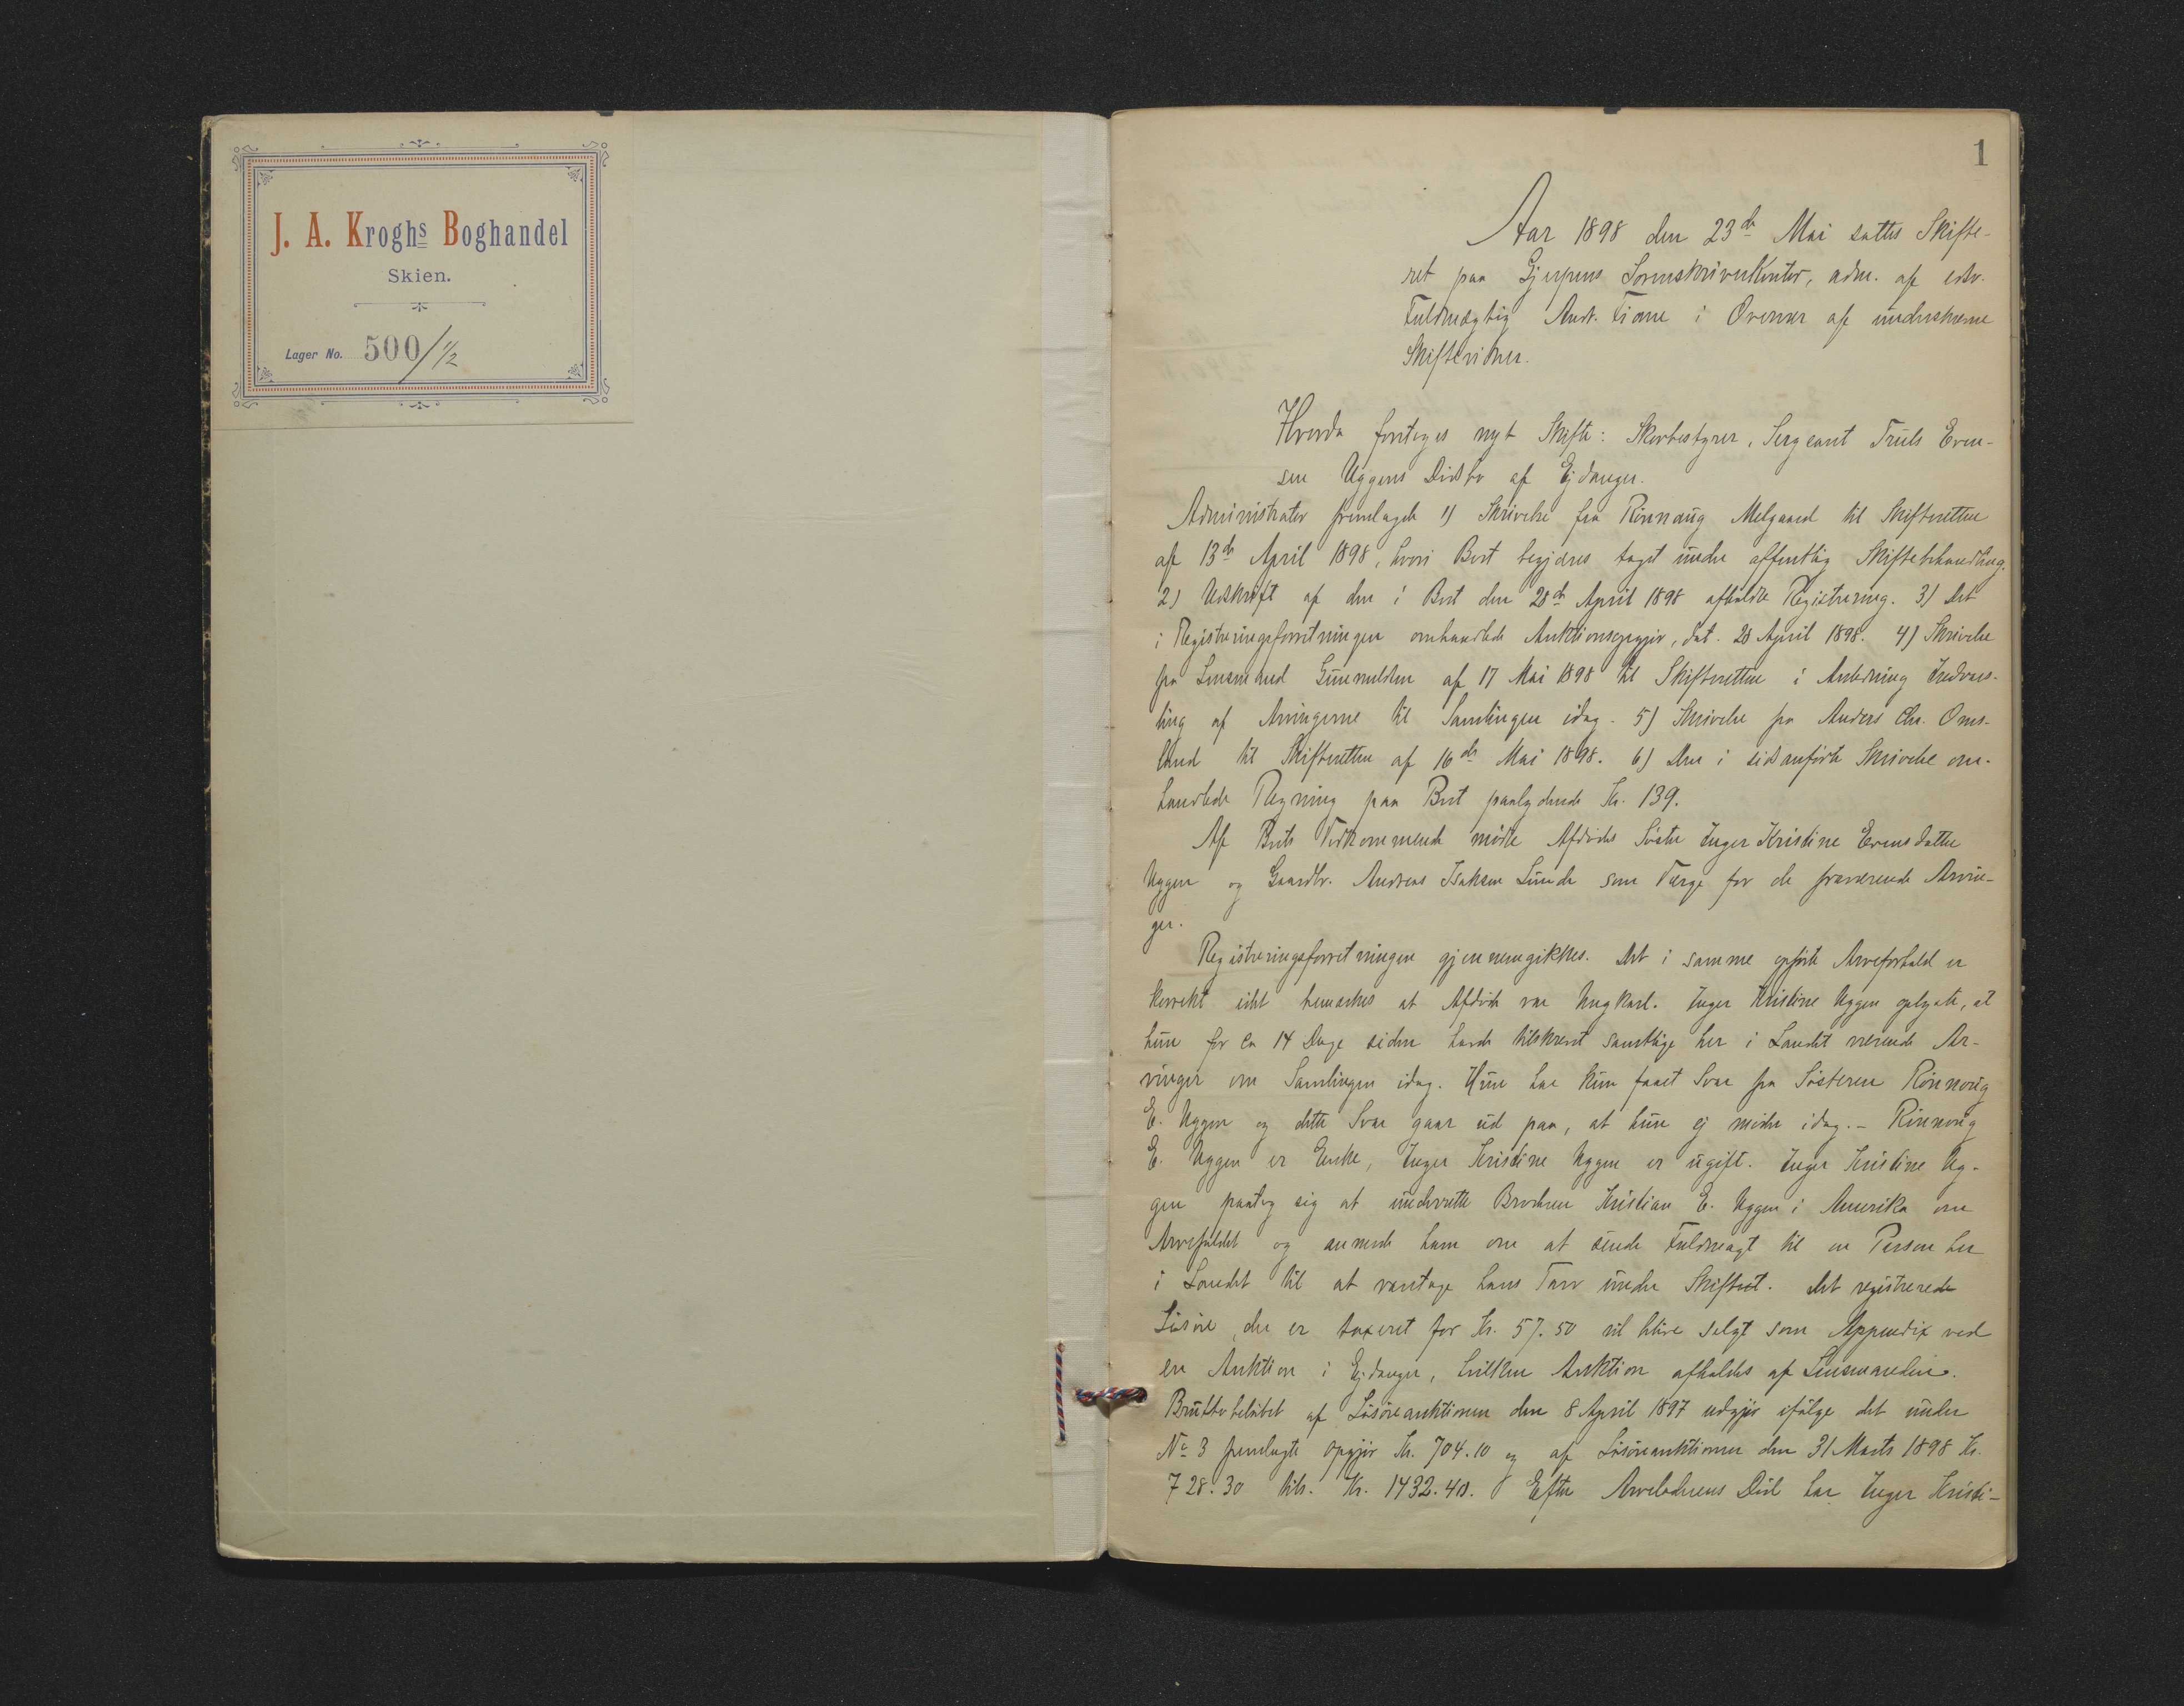 J. A. Kroghs Boghandel
Skien.
Lager No. 500/½
1
Aar 1898 den 23de Mai sattes Skifte-
ret paa Gjerpens Sorenskriverkontor, adm. af edsv.
Fuldmægtig Andr. i Overvær af underskrevne
Skiftevidner.
Hvorda foretoges nyt Skifte: Skovbestyrer, Sergeant Truls Even-
sen Uggens Dødsbo af Ejdanger.
Administrator fremlagde 1) Skrivelse fra Rønnaug Melgaard til Skifteretten
af 13de April 1898, hvori Boet begjæres taget under offentlig Skiftebehandling.
2) Udskrift af den i Boet den 28de April 1898 afholdte Registrering. 3) Det
i Registreringsforretningen omhandlede Auktionsopgjør, dat. 28 April 1898. 4) Skrivelse
fra Lensmand af 17 Mai 1898 til Skifteretten i Anledning Indvars-
ling af Arvingerne til Samlingen idag. 5) Skrivelse fra Anders Chr. Oms-
land til Skifteretten af 16de Mai 1898. 6) Den i sidanførte Skrivelse om-
handlede Regning paa Boet paalydende Kr. 139.
Af Boets Vedkommende mødte Afdødes Søster Inger Kristine Evensdatter
Uggen og Gaardbr. Andreas Isaksen Lunde som Værge for de fraværende Arvin-
ger.
Registreringsforretningen gjennemgikkes. Det i samme opførte Arveforhold er
korrekt idet bemærkes at Afdøde var Ungkarl. Inger Kristine Uggen oplyste, at
hun for ca 14 Dage siden havde tilskrevet samtlige her i Landet værende Ar-
vinger om Samlingen idag. Hun har kun faaet Svar fra Søsteren Rønnoug
E. Uggen og dette Svar gaar ud paa, at hun ej møder idag. - Rønnoug
E. Uggen er Enke, Inger Kristine Uggen er ugift. Inger Kristine Ug-
gen paatog sig at underrette Broderen Kristian E. Uggen i Amerika om
Arvefaldet og anmode ham om at sende Fuldmagt til en Person her
i Landet til at varetage hans Tarv under Skiftet. Det registrerede
Løsøre, der er taxeret for Kr. 57.50 vil blive solgt som Appendix ved
en Auktion i Ejdanger, hvilken Auktion afholdes af Lensmanden.
Bruttobeløbet af Løsøreauktionen den 8 April 1897 udgjør ifølge det under
No 3 fremlagte Opgjør Kr. 704.10 og af Løsøreauktionen den 31 Marts 1898 Kr.
728.30 tils. Kr. 1432.40. Efter Arveladerens Død har Inger Kristi-